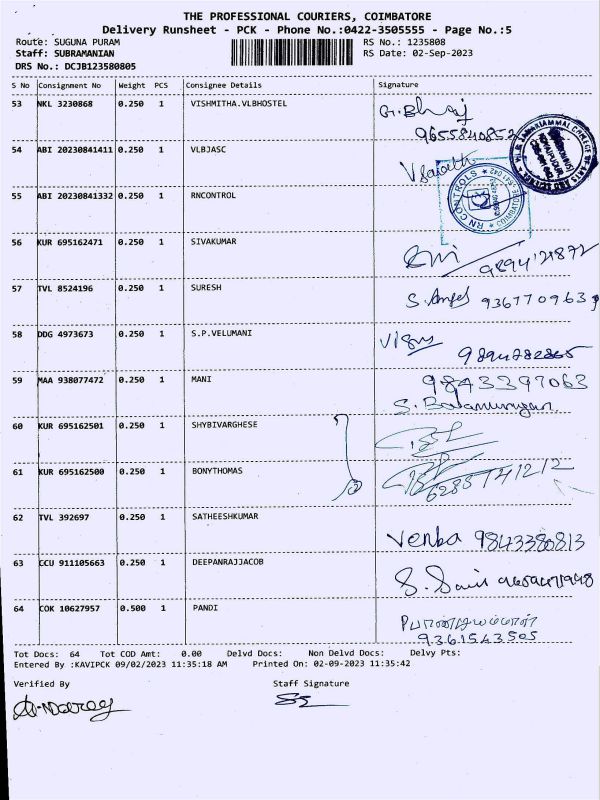 THE PROFESSIONAL COURIERS, COIMBATORE
Delivery Runsheet - PCK - Phone No.:0422-3505555 - Page No.:5
Route: SUGUNA PURAM RS No.: 1235808
Staff: SUBRAMANIAN RS Date: 02-Sep-2023
DRS No.: DCJB123580805
S No Consignment No Weight PCS Consignee Details Signature
53 NKL 3230868 0.250 1 VISHMITHA.VLBHOSTEL G.Bhraj
9655840852
54 ABI 20230841411 0.250 1 VLBJASC
55 ABI 20230841332 0.250 1 RNCONTROL RN CONTROLS COIMBATORE
56 KUR 695162471 0.250 1 SIVAKUMAR
57 TVL 8524196 0.250 1 SURESH S.
58 DDG 4973673 0.250 1 S.P.VELUMANI
59 MAA 938077472 0.250 1 MANI 9843397063
S. Balamurugan
60 KUR 695162501 0.250 1 SHYBIVARGHESE
61 KUR 695162500 0.250 1 BONYTHOMAS
62 TVL 392697 0.250 1 SATHEESHKUMAR Venba 9843380813
63 CCU 911105663 0.250 1 DEEPANRAJJACOB
64 COK 10627957 0.500 1 PANDI
9361543505
Tot Docs: 64 Tot COD Amt: 0.00 Delvd Docs: Non Delvd Docs: Delvy Pts:
Entered By :KAVIPCK 09/02/2023 11:35:18 AM Printed On: 02-09-2023 11:35:42
Verified By Staff Signature